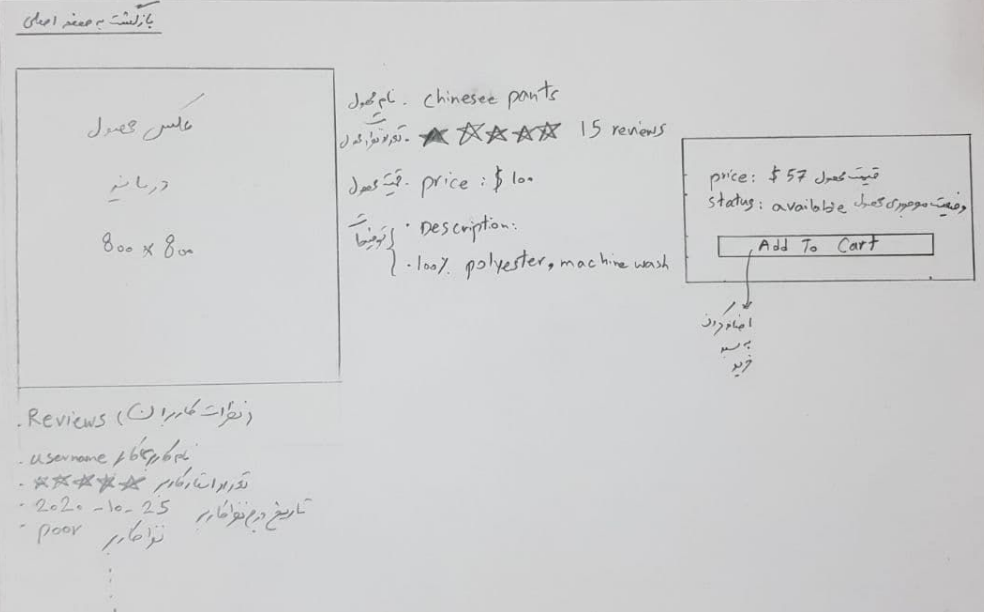 بازگشت به صفحه اصلی
عکس محصول
در سایز
800 x 800
نام محصول . chinesee pants
تعداد نظرات محصول . 15 reviews
قیمت محصول . price : $ 100
توضیحات . Description:
. 100% polyester, machine wash
price: $ 57 قیمت محصول
status: available وضعیت موجودی محصول
Add To Cart
اضافه کردن
به سبد
خرید
. Reviews (نظرات کاربران)
. username نام کاربری کاربر
. تعداد استار کاربر
. 2020-10-25 تاریخ درج نظر کاربر
. poor نظر کاربر